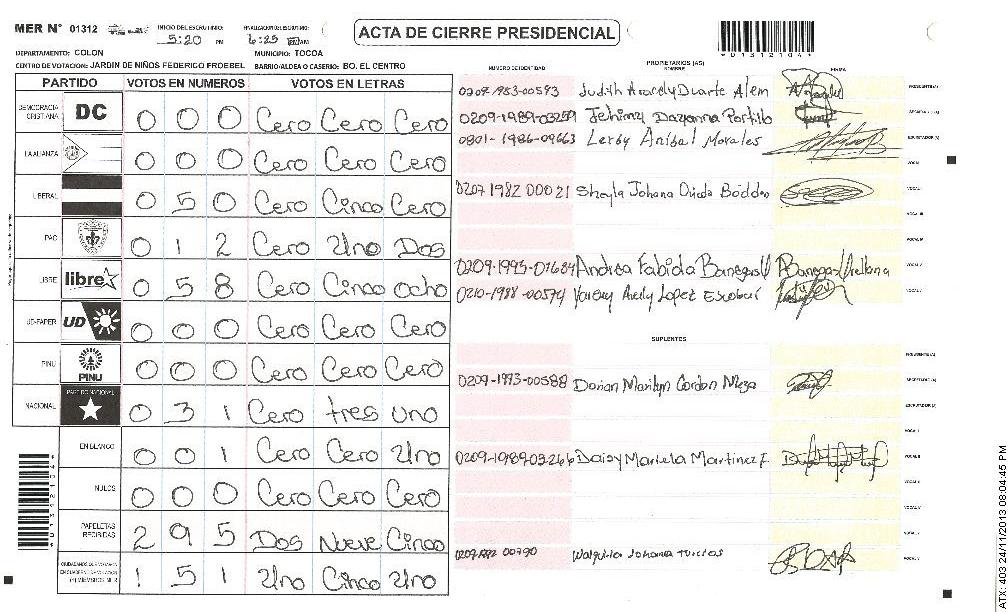 MER N° 01312 INICIO DEL ESCRUTINIO: 5:20 PM FINALIZACION DEL ESCRUTINIO: 6:25 PM
ACTA DE CIERRE PRESIDENCIAL
DEPARTAMENTO: COLON MUNICIPIO: TOCOA
CENTRO DE VOTACION: JARDIN DE NIÑOS FEDERICO FROEBEL BARRIO/ALDEA O CASERIO: BO. EL CENTRO
PARTIDO VOTOS EN NUMEROS VOTOS EN LETRAS
DEMOCRACIA CRISTIANA DC 0 0 0 Cero Cero Cero
LA ALIANZA 0 0 0 Cero Cero Cero
LIBERAL 0 5 0 Cero Cinco Cero
PAC 0 1 2 Cero Uno Dos
LIBRE libre 0 5 8 Cero Cinco ocho
UD-FAPER UD 0 0 0 Cero Cero Cero
PINU PINU 0 0 0 Cero Cero Cero
NACIONAL PARTIDO NACIONAL 0 3 1 Cero tres uno
EN BLANCO 0 0 1 Cero Cero Uno
NULOS 0 0 0 Cero Cero Cero
PAPELETAS RECIBIDAS 2 9 5 Dos Nueve Cinco
1 5 1 Uno Cinco Uno
PROPIETARIOS (AS)
NUMERO DE IDENTIDAD NOMBRE FIRMA
Judith Aracely Duarte
0209-1989-03259 Jehimy Dayanna Portillo
0801-1986-09663 Lerby Anibal Morales
0207 1982 00021 Sheyla Johana
0209-1993-01684 Andrea Fabiola Banegas
0210-1988-00574 Lopez Escobar
SUPLENTES
0209-1993-00588 Dorian Marilyn Cordon Meza
0209-1989-03266 Daisy Mariela Martinez F.
Johana
ATX: 403 24/11/2013 08:04:45 PM